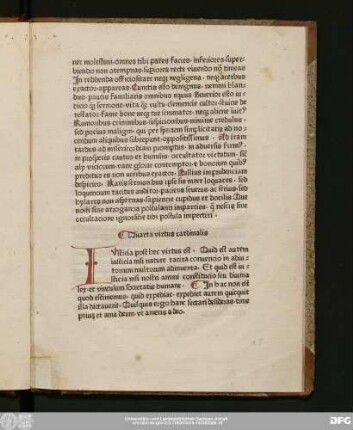 nec molestum. omnes tibi pares facies. inferiores super-
biendo non contemnas. superiores recte vivendo non timeas
In reddenda officiositate neque negligens. neque acerbus
exactor appareas. Cunctis esto benignus. nemini blan-
dus. paucis familiaris omnibus equus Severior esto iu-
dicio quam sermone. vita quam vultu. clementie cultor. sevicie de-
testator. fame bone neque tue seminator. neque aliene
Rumoribus criminibus suspicionibus minime credulus
sed pocius malignis qui per speciem simplicitatis ad no-
cendum aliquibus subrepunt. oppositissimus. ad iram
tardus ad misericordiam promptus. in adversis firmus
in prosperis cautus et humilis. occultator virtutum. sicut
alii viciorum. vane glorie contemptor. et bonorum quibus
preditus es non acerbus exactor. Nullius imprudenciam
despicies. Rari sermonis ipse sis inter loquaces. sed
loquentium tacitus auditor paciens severus ac serius. sed
hylares non aspernans. sapiencie cupidus et docilis Que
nosti sine arrogancia postulanti imparcies. que nescis sine
occultacione ignorancie tibi postula imperciri.
Quarta virtus cardinalis
Iusticia post hec virtus est. Quid est autem
iusticia nisi nature tacita convencio in adiu-
torium multorum adinventa. Et quid est iu-
sticia nisi nostri animi constitucio sed divina
lex. et vinculum societatis humane. In hac non est
quod estimemus. quid expediat. expediet autem quicquid
illa dictaverit. Quisquis ergo hanc sectari desideras. time
prius et ama deum. ut ameris a deo.
Universitäts- und Landesbibliothek Sachsen-Anhalt
DFG